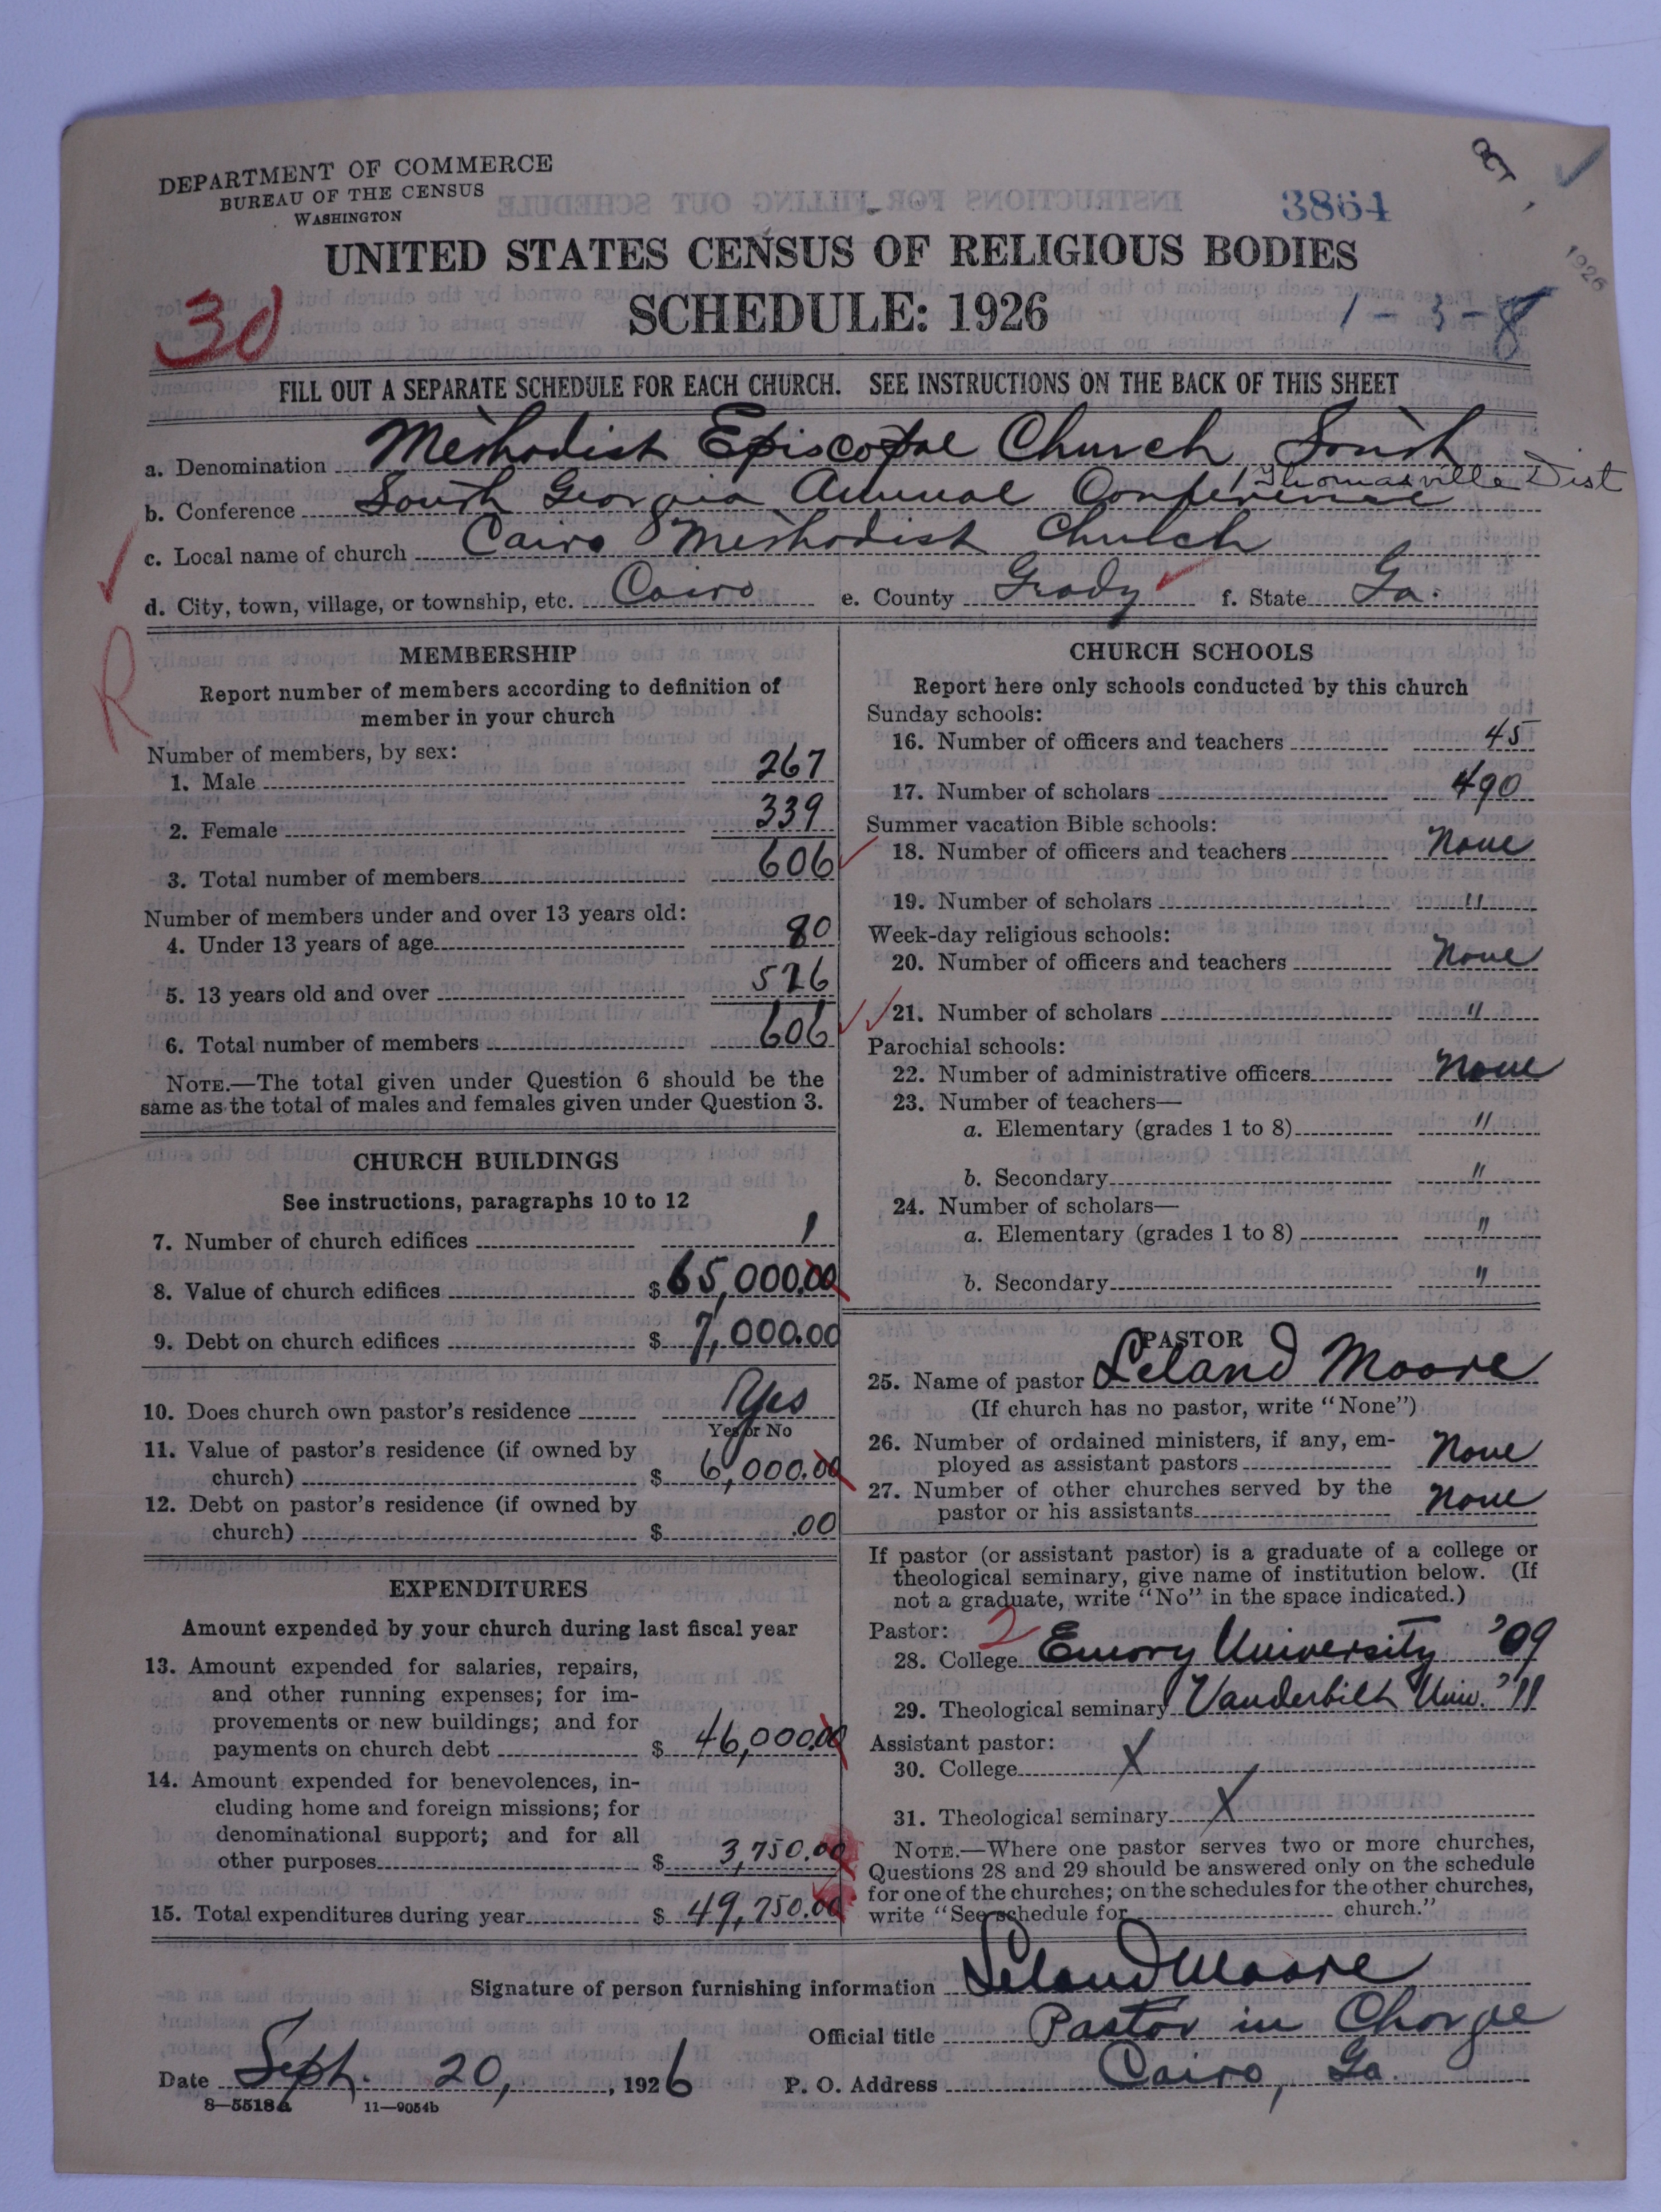 DEPARTMENT OF COMMERCE
BUREAU OF THE CENSUS
WASHINGTON
3864
1926
UNITED STATES CENSUS OF RELIGIOUS BODIES
30
SCHEDULE: 1926
1-3-8
FILL OUT A SEPARATE SCHEDULE FOR EACH CHURCH. SEE INSTRUCTIONS ON THE BACK OF THIS SHEET
a. Denomination Methodist Episcopal Church, South
b. Conference South Georgia Annual Conference / Thomasville Dist
c. Local name of church Cairo Methodist Church
d. City, town, village, or township, etc. Cairo e. County Grady f. State Ga.
R
MEMBERSHIP
Report number of members according to definition of
member in your church
Number of members, by sex:
1. Male 267
2. Female 339
3. Total number of members 606
Number of members under and over 13 years old:
4. Under 13 years of age 80
5. 13 years old and over 526
6. Total number of members 606
NOTE.—The total given under Question 6 should be the
same as the total of males and females given under Question 3.
CHURCH BUILDINGS
See instructions, paragraphs 10 to 12
7. Number of church edifices 1
8. Value of church edifices $ 65,000.00
9. Debt on church edifices $ 7,000.00
10. Does church own pastor's residence Yes
Yes or No
11. Value of pastor's residence (if owned by
church) $ 6,000.00
12. Debt on pastor's residence (if owned by
church) $ .00
EXPENDITURES
Amount expended by your church during last fiscal year
13. Amount expended for salaries, repairs,
and other running expenses; for im-
provements or new buildings; and for
payments on church debt $ 46,000.00
14. Amount expended for benevolences, in-
cluding home and foreign missions; for
denominational support; and for all
other purposes $ 3,750.00
15. Total expenditures during year $ 49,750.00
CHURCH SCHOOLS
Report here only schools conducted by this church
Sunday schools:
16. Number of officers and teachers 45
17. Number of scholars 490
Summer vacation Bible schools:
18. Number of officers and teachers None
19. Number of scholars "
Week-day religious schools:
20. Number of officers and teachers None
21. Number of scholars "
Parochial schools:
22. Number of administrative officers None
23. Number of teachers—
a. Elementary (grades 1 to 8) "
b. Secondary "
24. Number of scholars—
a. Elementary (grades 1 to 8) "
b. Secondary "
PASTOR
25. Name of pastor Leland Moore
(If church has no pastor, write "None")
26. Number of ordained ministers, if any, em-
ployed as assistant pastors None
27. Number of other churches served by the
pastor or his assistants None
If pastor (or assistant pastor) is a graduate of a college or
theological seminary, give name of institution below. (If
not a graduate, write "No" in the space indicated.)
Pastor: 2
28. College Emory University '09
29. Theological seminary Vanderbilt Univ. '11
Assistant pastor:
30. College X
31. Theological seminary X
NOTE.—Where one pastor serves two or more churches,
Questions 28 and 29 should be answered only on the schedule
for one of the churches; on the schedules for the other churches,
write "See schedule for church."
Signature of person furnishing information Leland Moore
Official title Pastor in Charge
Date Sept. 20, 1926 P. O. Address Cairo, Ga.
8—5518a 11—9054b